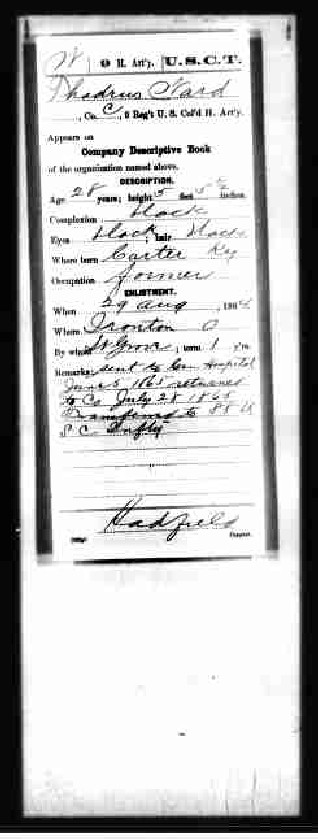 W | 9 H. Art'y. | U.S.C.T.
Thadrus Ward
, Co. C, 9 Reg't U. S. Col'd H. Art'y.
Appears on
Company Descriptive Book
of the organization named above.
DESCRIPTION.
Age 28 years; height 5 feet 5 ½ inches.
Complexion black
Eyes black; hair black
Where born Carter Ky
Occupation farmer
ENLISTMENT.
When 29 Aug, 1864
Where Ironton O
By whom St Grove; term 1 y'rs.
Remarks: Sent to Gen Hospital
June 5 1865 returned
to Co July 28 1865
Transferred to 5th U
S C
Hadfield
Copyist.